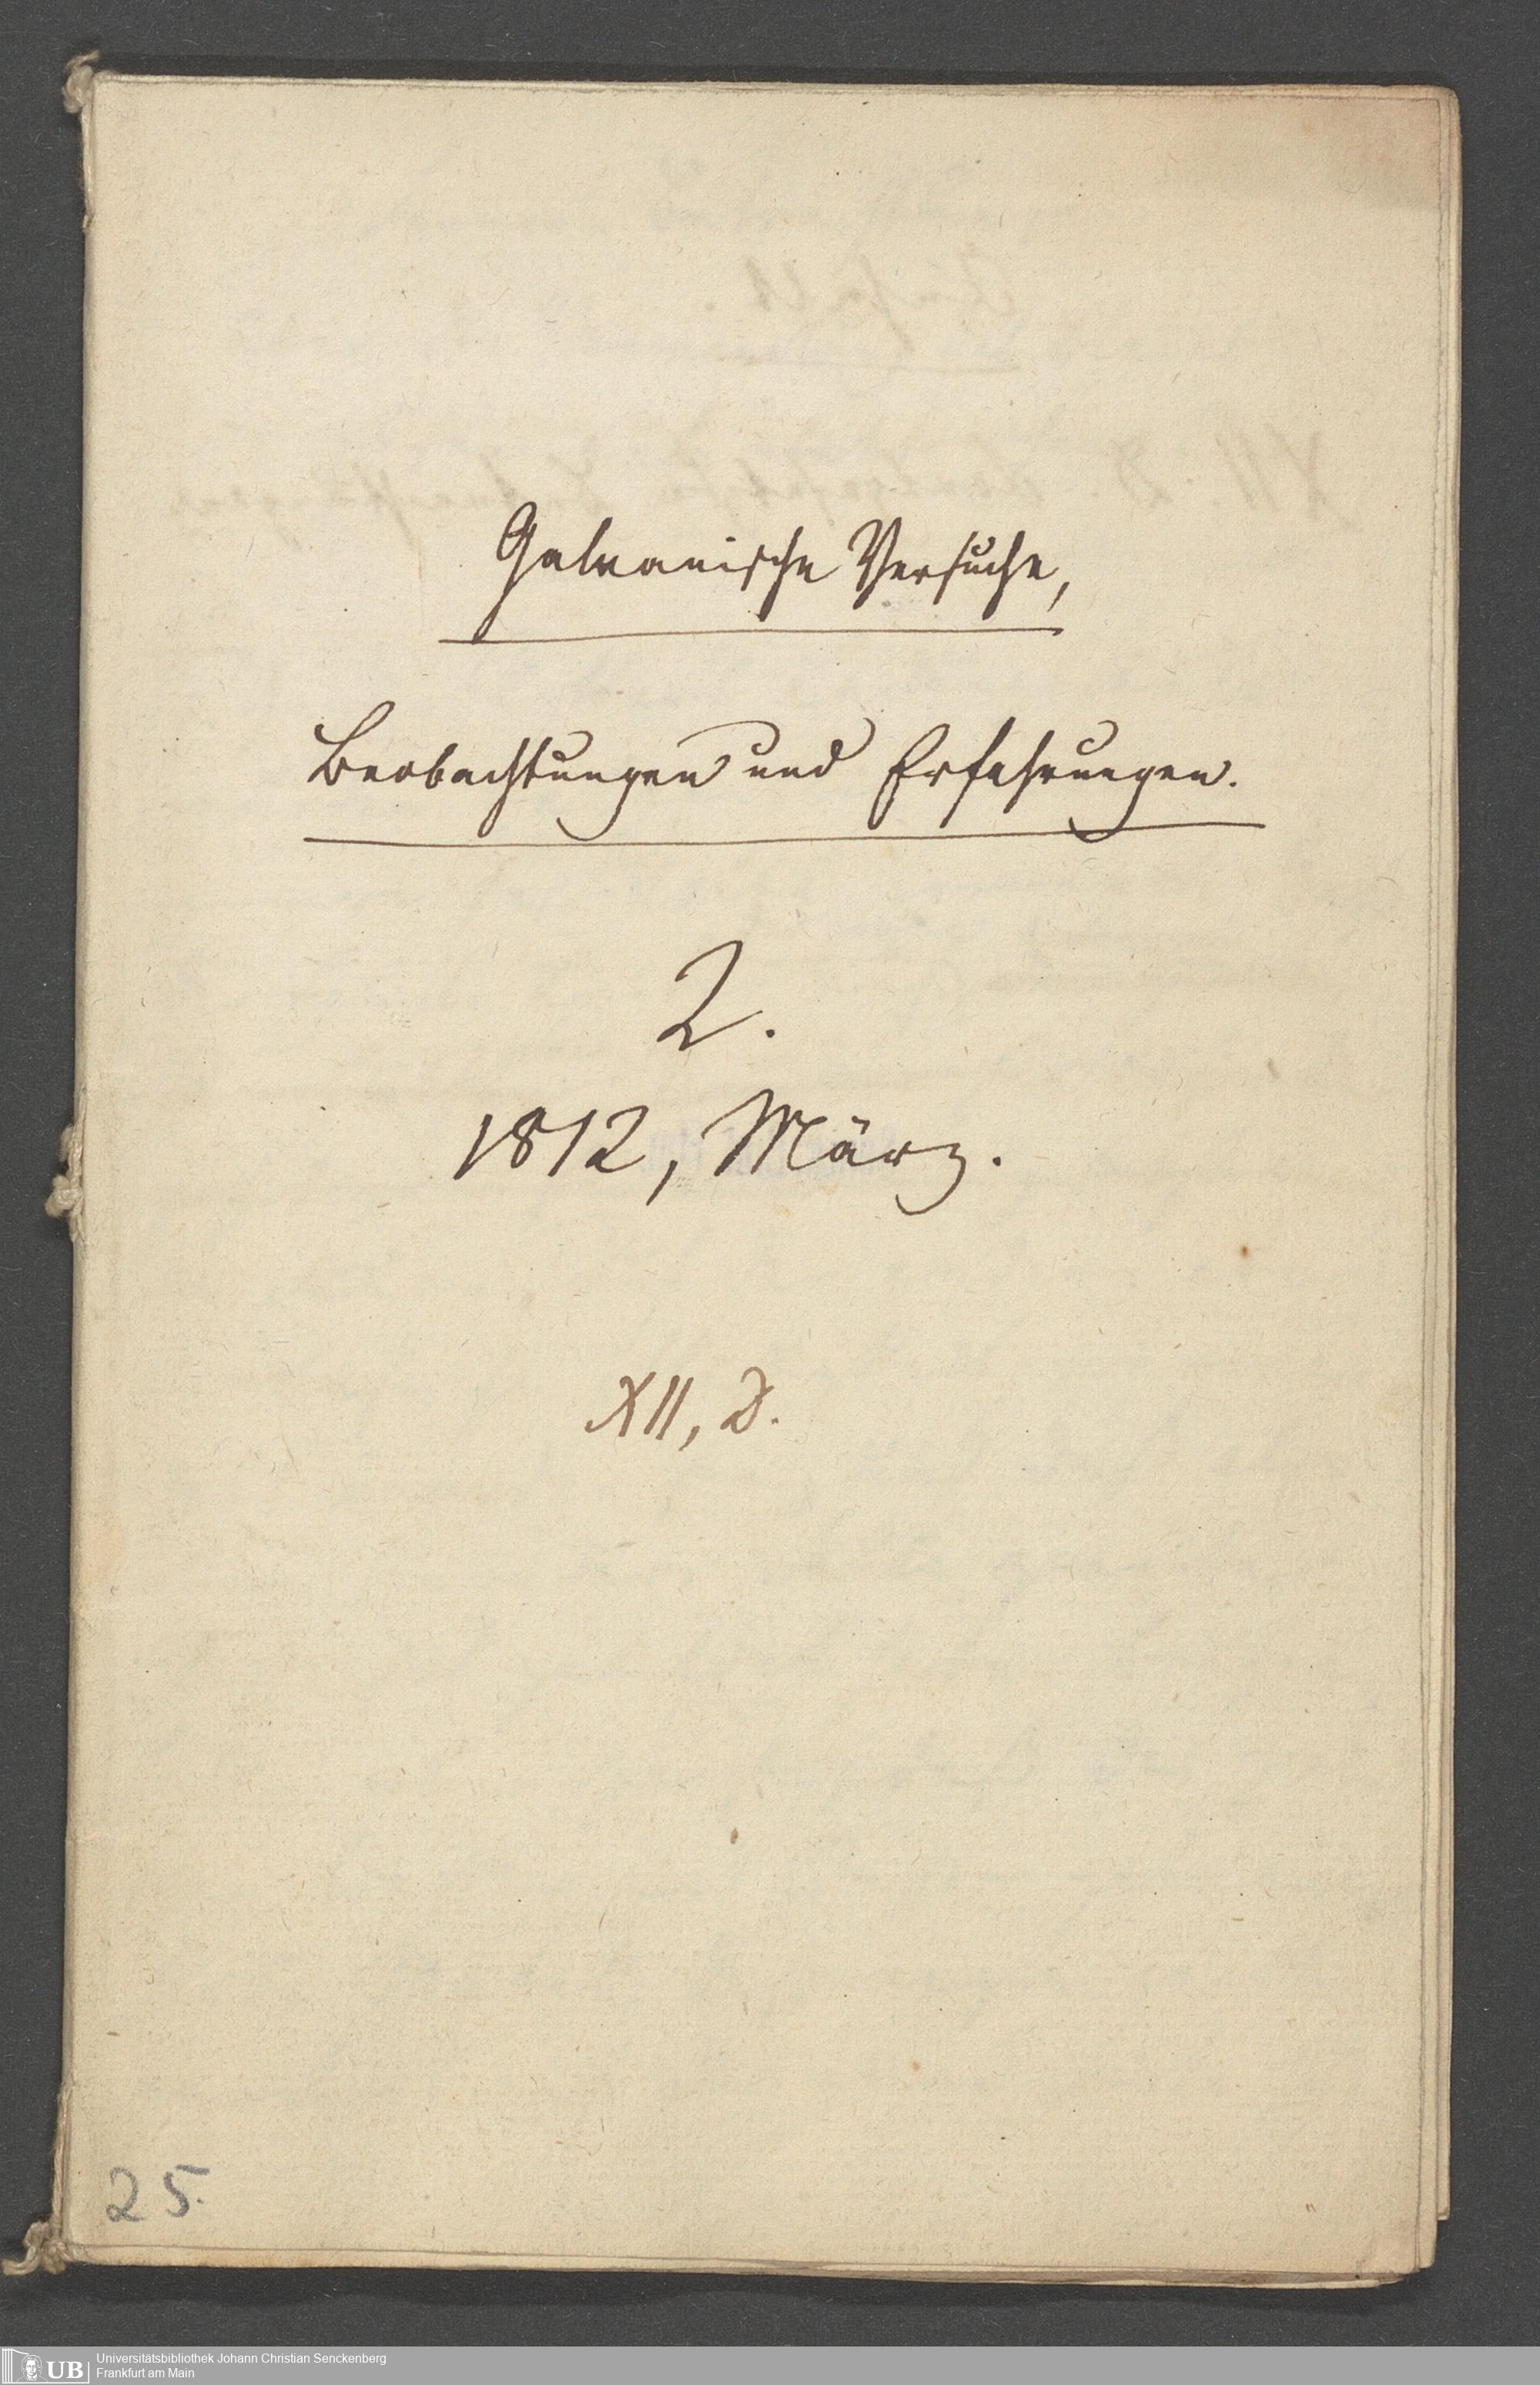 Galvanische Versuche,
Beobachtungen und Erfahrungen.
2.
1812, März.
XII, D.
25.
UB
Universitätsbibliothek Johann Christian Senckenberg
Frankfurt am Main